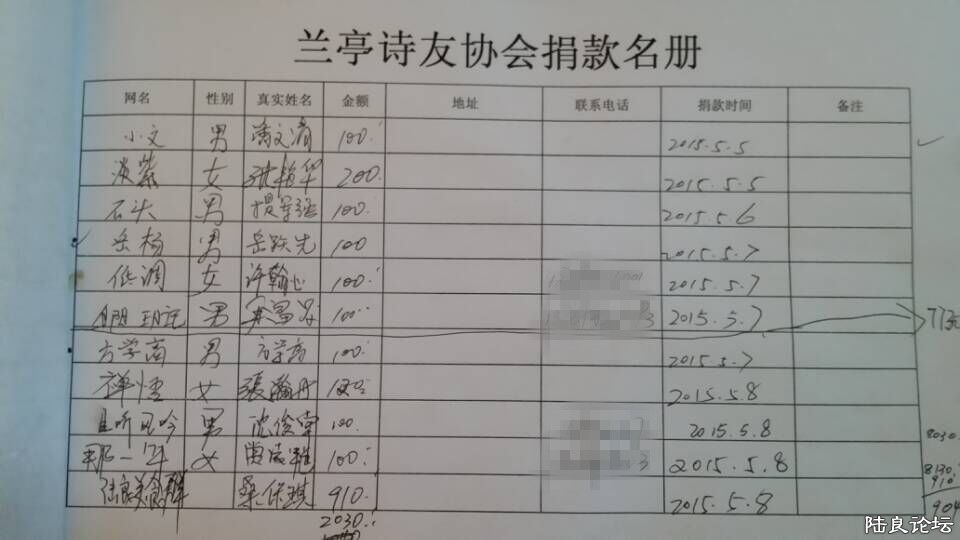 兰亭诗友协会捐款名册
网名 性别 真实姓名 金额 地址 联系电话 捐款时间 备注
小文 男 潘文清 100. 2015.5.5
淡紫 女 张艳华 200. 2015.5.5
石头 男 100. 2015.5.6
岳杨 男 岳跃先 100 2015.5.7
低调 女 许翰心 100. 2015.5.7
男 100. 3 2015.5.7 77元
方学商 男 方学商 100. 2015.5.7
禅悟 女 張瀚丹 100 2015.5.8
且听风吟 男 沈俊宇 100. 2015.5.8 8030.
那一年 女 100. 3 2015.5.8 8130.
陆良美食群 桑保琪 910. 2015.5.8 910.
2030. 904
陆良论坛